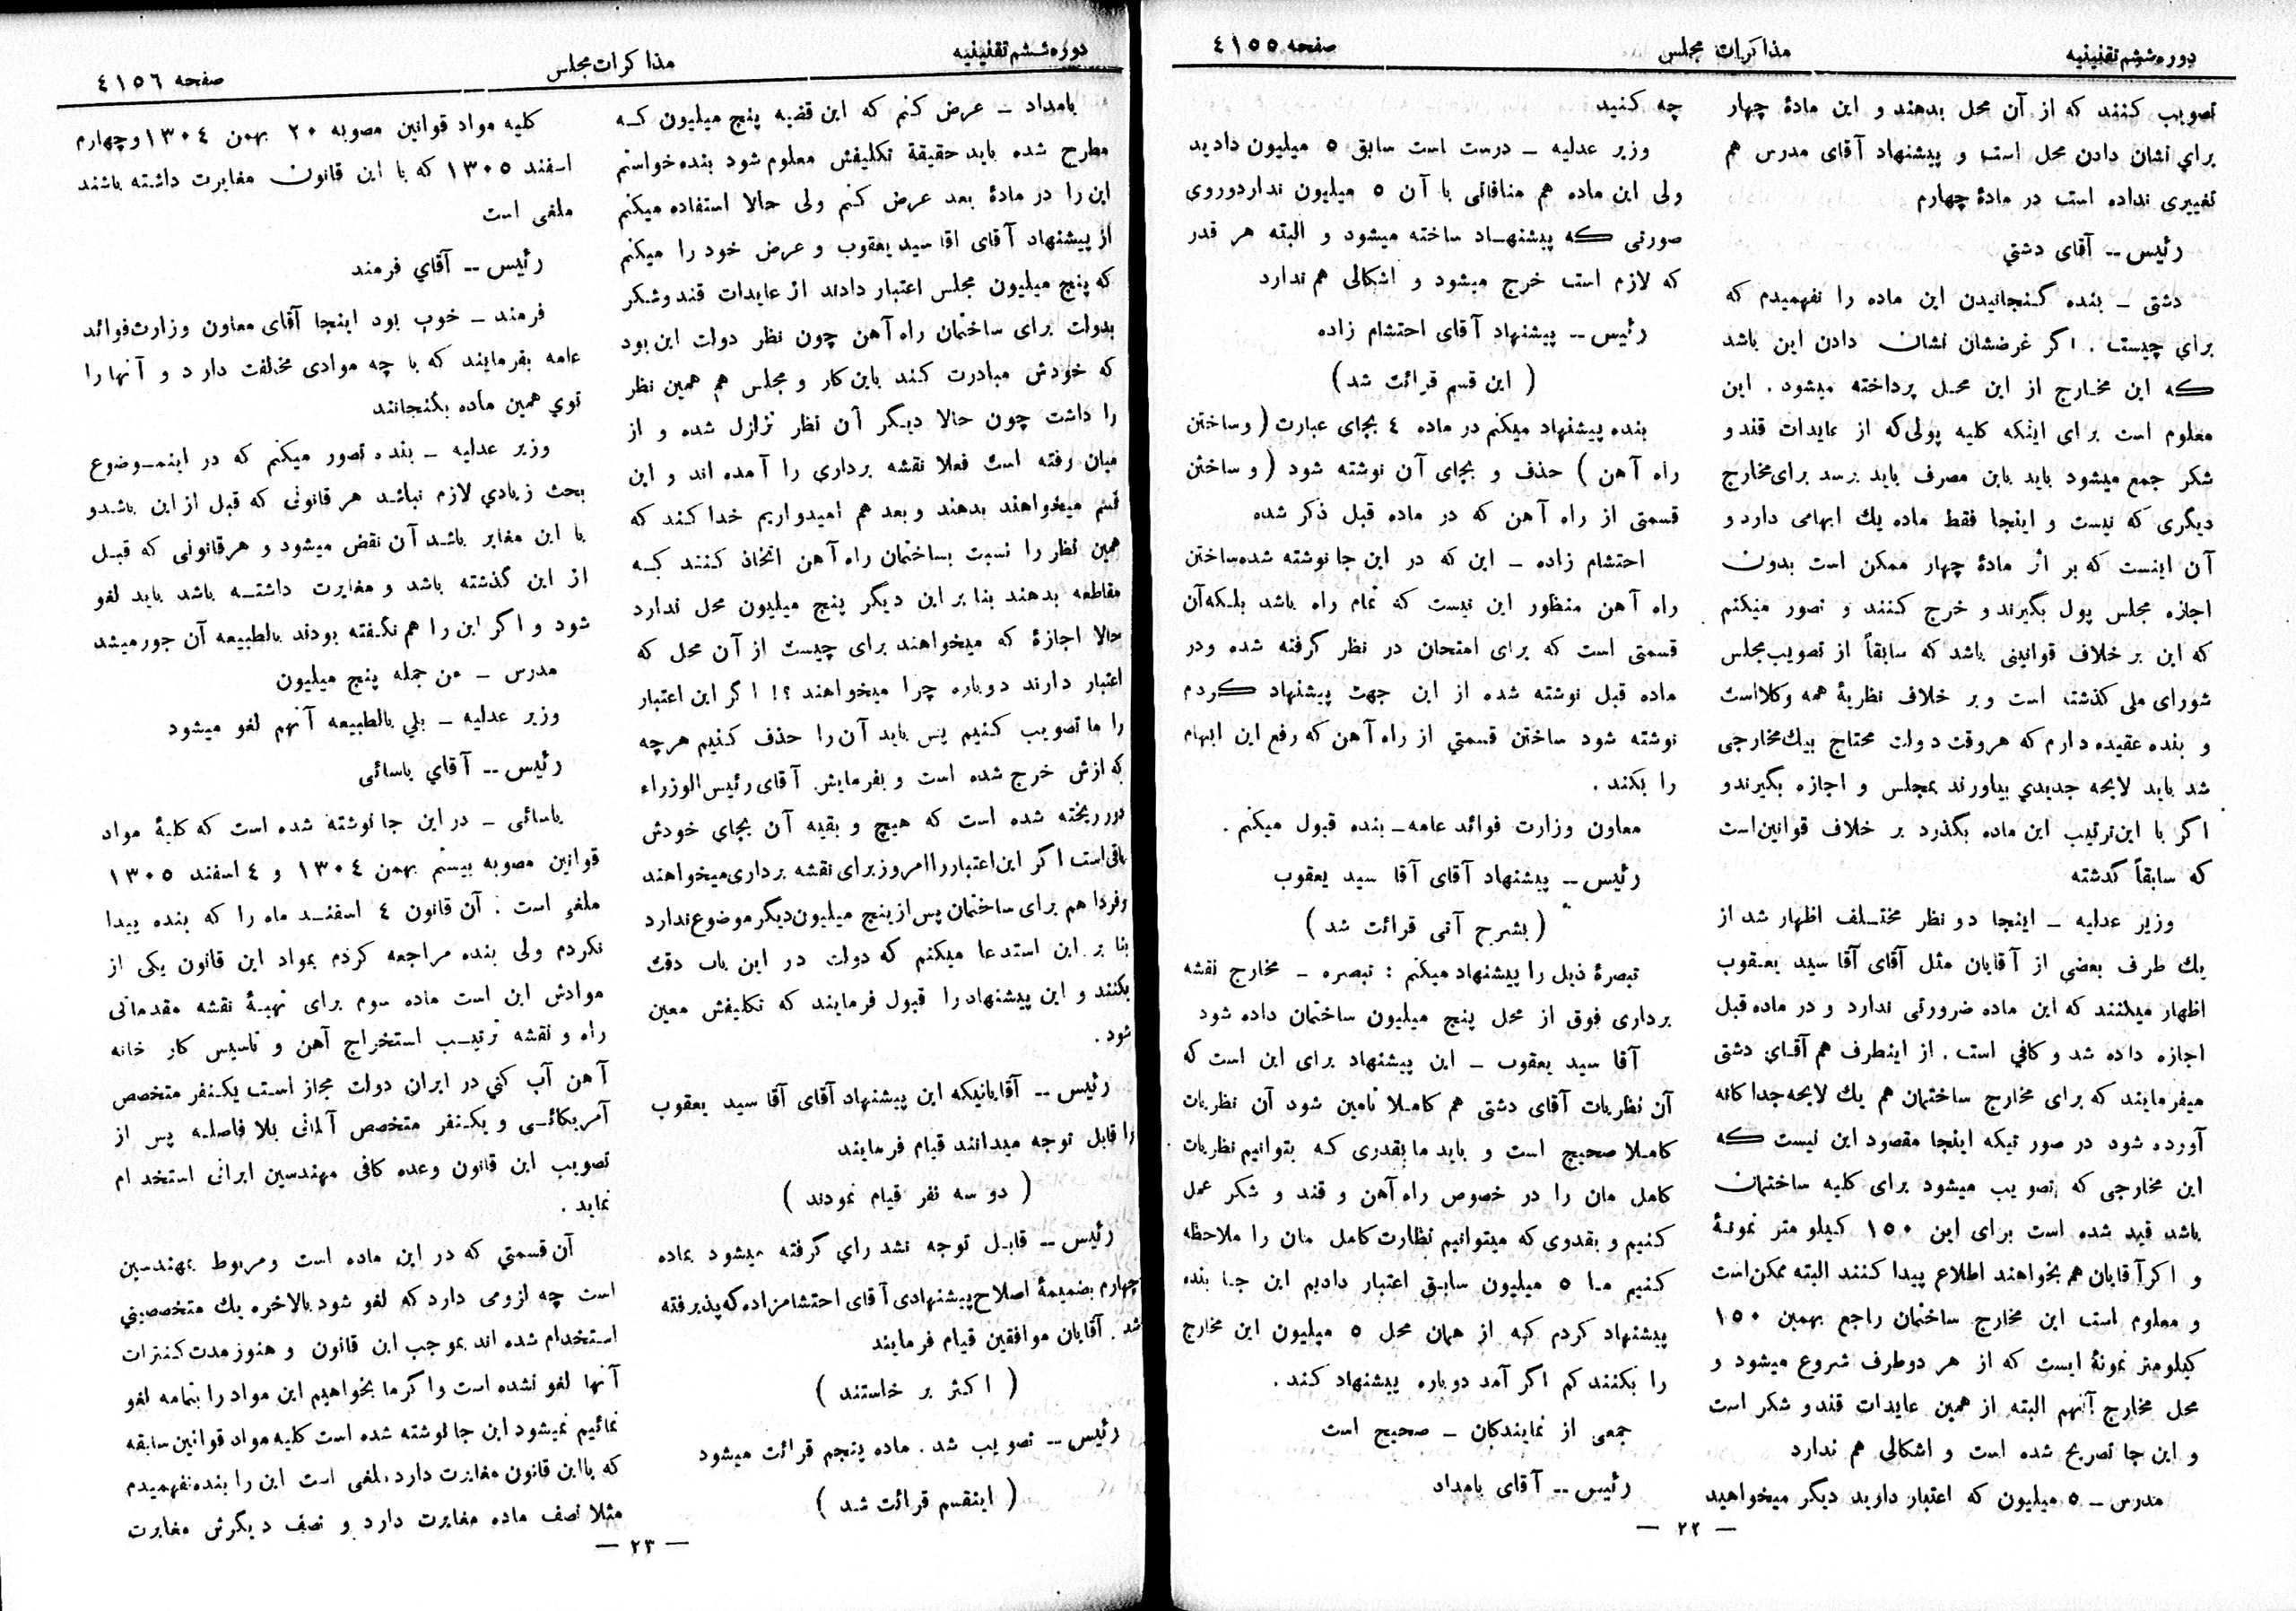 دوره ششم تقنینیه
مذاکرات مجلس
صفحه ٤١٥٥
تصویب کنند که از آن محل بدهند و این مادۀ چهار
براي نشان دادن محل است و پیشنهاد آقای مدرس هم
تغییری نداده است در مادۀ چهارم
رئیس -- آقای دشتي
دشتی - بنده گنجانیدن این ماده را نفهمیدم که
براي چیست . اگر غرضشان نشان دادن این باشد
که این مخارج از این محل پرداخته میشود . این
معلوم است برای اینکه کلیه پولی که از عایدات قند و
شکر جمع میشود باید باین مصرف باید برسد برای مخارج
دیگری که نیست و اینجا فقط ماده یك ابهامی دارد و
آن اینست که بر اثر مادۀ چهار ممکن است بدون
اجازه مجلس پول بگیرند و خرج کنند و تصور میکنم
که این بر خلاف قوانینی باشد که سابقاً از تصویب مجلس
شورای ملی گذشته است و بر خلاف نظریۀ همه وکلا است
و بنده عقیده دارم که هروقت دولت محتاج بیك مخارجی
شد باید لایحه جدیدي بیاورند بمجلس و اجازه بگیرند و
اگر با این ترتیب این ماده بگذرد بر خلاف قوانین است
که سابقاً گذشته
وزیر عدلیه - اینجا دو نظر مختلف اظهار شد از
یك طرف بعضی از آقایان مثل آقای آقا سید یعقوب
اظهار میکنند که این ماده ضرورتی ندارد و در ماده قبل
اجازه داده شد و کافي است . از اینطرف هم آقاي دشتی
میفرمایند که برای مخارج ساختمان هم یك لایحه جداگانه
آورده شود در صورتیکه اینجا مقصود این نیست که
این مخارجی که تصویب میشود برای کلیه ساختمان
باشد قید شده است برای این ١٥٠ کیلو متر نمونۀ
و اگر آقایان هم بخواهند اطلاع پیدا کنند البته ممکن است
و معلوم است این مخارج ساختمان راجع بهمین ١٥٠
کیلومتر نمونۀ ایست که از هر دو طرف شروع میشود و
محل مخارج آنهم البته از همین عایدات قند و شکر است
و این جا تصریح شده است و اشکالی هم ندارد
مدرس - ٥ میلیون که اعتبار دارید دیگر میخواهید
چه کنید
وزیر عدلیه - درست است سابق ٥ میلیون دادید
ولی این ماده هم منافاتی با آن ٥ میلیون ندارد و روی
صورتی که پیشنهاد ساخته میشود و البته هر قدر
که لازم است خرج میشود و اشکالی هم ندارد
رئیس -- پیشنهاد آقای احتشام زاده
( این قسم قرائت شد )
بنده پیشنهاد میکنم در ماده ٤ بجای عبارت ( و ساختن
راه آهن ) حذف و بجای آن نوشته شود ( و ساختن
قسمتی از راه آهن که در ماده قبل ذکر شده
احتشام زاده - این که در این جا نوشته شده ساختن
راه آهن منظور این نیست که تمام راه باشد بلکه آن
قسمتی است که برای امتحان در نظر گرفته شده و در
ماده قبل نوشته شده از این جهت پیشنهاد کردم
نوشته شود ساختن قسمتي از راه آهن که رفع این ابهام
را بکند .
معاون وزارت فوائد عامه - بنده قبول میکنم .
رئیس -- پیشنهاد آقای آقا سید یعقوب
( بشرح آتی قرائت شد )
تبصرۀ ذیل را پیشنهاد میکنم : تبصره - مخارج نقشه
برداری فوق از محل پنج میلیون ساختمان داده شود
آقا سید یعقوب - این پیشنهاد برای این است که
آن نظریات آقای دشتی هم کاملا تامین شود آن نظریات
کاملا صحیح است و باید ما بقدری که بتوانیم نظریات
کامل مان را در خصوص راه آهن و قند و شکر عمل
کنیم و بقدوی که میتوانیم نظارت کامل مان را ملاحظه
کنیم ما ٥ میلیون سابق اعتبار دادیم این جا بنده
پیشنهاد کردم که از همان محل ٥ میلیون این مخارج
را بکنند کم اگر آمد دوباره پیشنهاد کند .
جمعی از نمایندگان - صحیح است
رئیس -- آقای بامداد
— ٢٢ —
دوره ششم تقنینیه
مذاکرات مجلس
صفحه ٤١٥٦
بامداد - عرض کنم که این قضیه پنج میلیون که
مطرح شده باید حقیقة تکلیفش معلوم شود بنده خواستم
این را در مادۀ بعد عرض کنم ولی حالا استفاده میکنم
از پیشنهاد آقای اقا سید یعقوب و عرض خود را میکنم
که پنج میلیون مجلس اعتبار دادند از عایدات قند و شکر
بدولت برای ساختمان راه آهن چون نظر دولت این بود
که خودش مبادرت کند باین کار و مجلس هم همین نظر
را داشت چون حالا دیگر آن نظر تزلزل شده و از
میان رفته است فعلا نقشه برداری را آمده اند و این
قسم میخواهند بدهند و بعد هم امیدواریم خدا کند که
همین نظر را نسبت بساختمان راه آهن اتخاذ کنند که
مقاطعه بدهند بنا بر این دیگر پنج میلیون محل ندارد
حالا اجازۀ که میخواهند برای چیست از آن محل که
اعتبار دارند دوباره چرا میخواهند ؟! اگر این اعتبار
را ما تصویب کنیم پس باید آن را حذف کنیم هرچه
که ازش خرج شده است و بفرمایش آقای رئیس الوزراء
دور ریخته شده است که هیچ و بقیه آن بجای خودش
باقی است اگر این اعتبار را امروز برای نقشه برداری میخواهند
و فردا هم برای ساختمان پس از پنج میلیون دیگر موضوع ندارد
بنا بر این استدعا میکنم که دولت در این باب دقت
بکنند و این پیشنهاد را قبول فرمایند که تکلیفش معین
شود .
رئیس -- آقایانیکه این پیشنهاد آقای آقا سید یعقوب
را قابل توجه میدانند قیام فرمایند
( دو سه نفر قیام نمودند )
رئیس -- قابل توجه نشد راي گرفته میشود بماده
چهارم بضمیمۀ اصلاح پیشنهادی آقای احتشامزاده که پذیرفته
شد . آقایان موافقین قیام فرمایند
( اکثر بر خاستند )
رئیس -- تصویب شد . ماده پنجم قرائت میشود
( اینقسم قرائت شد )
کلیه مواد قوانین مصوبه ٢٠ بهمن ١٣٠٤ و چهارم
اسفند ١٣٠٥ که با این قانون مغایرت داشته باشند
ملغی است
رئیس -- آقاي فرمند
فرمند - خوب بود اینجا آقای معاون وزارت فوائد
عامه بفرمایند که با چه موادی مخالفت دارد و آنها را
توي همین ماده بگنجانند
وزیر عدلیه - بنده تصور میکنم که در اینموضوع
بحث زیادي لازم نباشد هر قانونی که قبل از این باشد و
با این مغایر باشد آن نقض میشود و هر قانونی که قبل
از این گذشته باشد و مغایرت داشته باشد باید لغو
شود و اگر این را هم نگفته بودند بالطبیعه آن جور میشد
مدرس - من جمله پنج میلیون
وزیر عدلیه - بلي بالطبیعه آنهم لغو میشود
رئیس -- آقاي یاسائی
یاسائی - در این جا نوشته شده است که کلیۀ مواد
قوانین مصوبه بیستم بهمن ١٣٠٤ و ٤ اسفند ١٣٠٥
ملغی است . آن قانون ٤ اسفند ماه را که بنده پیدا
نکردم ولی بنده مراجعه کردم بمواد این قانون یکی از
موادش این است ماده سوم برای تهیۀ نقشه مقدماتی
راه و نقشه ترتیب استخراج آهن و تاسیس کار خانه
آهن آب کني در ایران دولت مجاز است یکنفر متخصص
آمریکائی و یکنفر متخصص آلمانی بلا فاصله پس از
تصویب این قانون وعده کافی مهندسین ایرانی استخدام
نماید .
آن قسمتي که در این ماده است و مربوط بمهندسین
است چه لزومی دارد که لغو شود بالاخره یك متخصصیني
استخدام شده اند بموجب این قانون و هنوز مدت کنترات
آنها لغو نشده است و اگر ما بخواهیم این مواد را بتمامه لغو
نمائیم نمیشود این جا نوشته شده است کلیه مواد قوانین سابقه
که با این قانون مغایرت دارد ملغی است این را بنده نفهمیدم
مثلا نصف ماده مغایرت دارد و نصف دیگرش مغایرت
— ٢٣ —